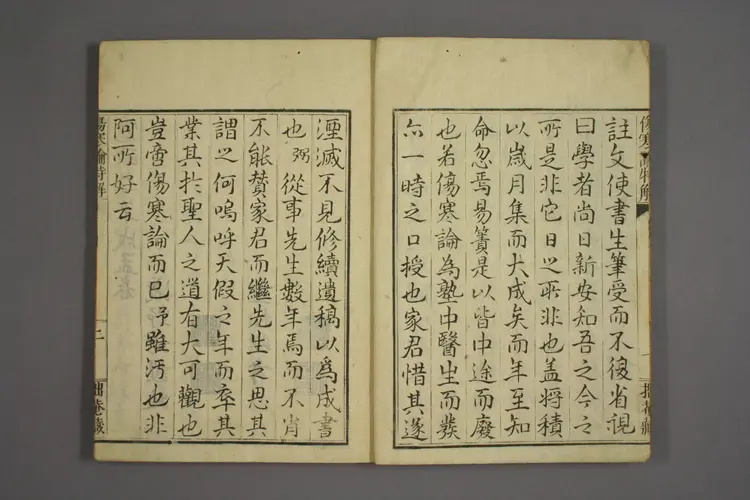 傷寒論特解
註文使書生筆受而不復省視
曰學者尚日新安知吾之今之
所是非它日之所非也蓋將積
以歲月集而大成矣而年至知
命忽焉易簀是以皆中途而廢
也若傷寒論為塾中醫生而發
亦一時之口授也家君惜其遂
湮滅不見修續遺稿以爲成書
也弼從事先生數年焉而不肖
不能賛家君而繼先生之思其
謂之何嗚呼天假之年而卒其
業其於聖人之道有大可觀也
豈啻傷寒論而已予雖汚也非
阿所好云
傷寒論特解
二
拙巷藏